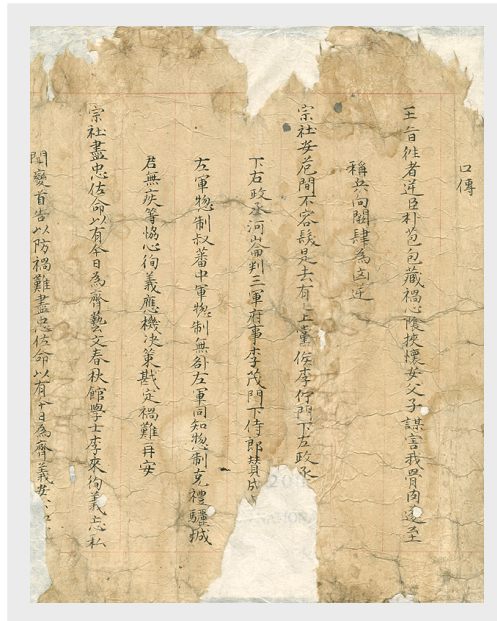 口傳
王旨徃者逆臣朴苞包藏禍心陰挾懷安父子謀害我骨肉遂至
稱兵向闕肆爲凶逆
宗社安危間不容髮是去有上黨侯李佇門下左政丞
下右政丞河崙判三軍府事李茂門下侍郎贊成
左軍摠制叔蕃中軍摠制無咎左軍同知摠制克禮驪城
君無疾等恊心徇義應機决策戡定禍難再安
宗社盡忠佐命以有今日爲齊藝文春秋館學士李來徇義忘私
聞變首告以防禍難盡忠佐命以有今日爲齊義安